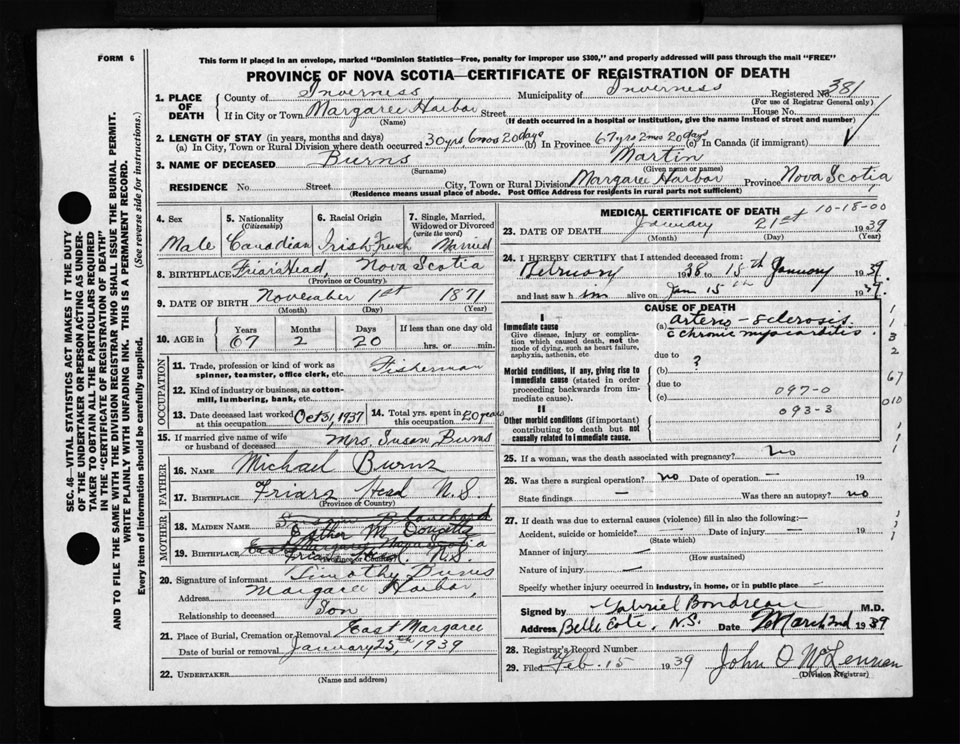 FORM 6
This form if placed in an envelope, marked "Dominion Statistics—Free, penalty for improper use $300," and properly addressed will pass through the mail "FREE"
PROVINCE OF NOVA SCOTIA—CERTIFICATE OF REGISTRATION OF DEATH
SEC. 46—VITAL STATISTICS ACT MAKES IT THE DUTY
OF THE UNDERTAKER OR PERSON ACTING AS UNDER-
TAKER TO OBTAIN ALL THE PARTICULARS REQUIRED
IN THE "CERTIFICATE OF REGISTRATION OF DEATH"
AND TO FILE THE SAME WITH THE DIVISION REGISTRAR WHO SHALL ISSUE THE BURIAL PERMIT.
WRITE PLAINLY WITH UNFADING INK. THIS IS A PERMANENT RECORD.
Every item of information should be carefully supplied. (See reverse side for instructions.)
1. PLACE OF DEATH
County of Inverness Municipality of Inverness Registered No. 381
(For use of Registrar General only)
If in City or Town Margaree Harbor Street House No.
(Name) (If death occurred in a hospital or institution, give the name instead of street and number)
2. LENGTH OF STAY (in years, months and days)
(a) In City, Town or Rural Division where death occurred 30 yrs 6 mos 20 days (b) In Province 67 yrs 2 mos 20 days (c) In Canada (if immigrant)
3. NAME OF DECEASED Burns Martin
(Surname) (Given name or names)
RESIDENCE No. Street City, Town or Rural Division Margaree Harbor Province Nova Scotia
(Residence means usual place of abode. Post Office Address for residents in rural parts not sufficient)
4. Sex Male
5. Nationality (Citizenship) Canadian
6. Racial Origin Irish French
7. Single, Married, Widowed or Divorced (write the word) Married
8. BIRTHPLACE Friars Head, Nova Scotia
(Province or Country)
9. DATE OF BIRTH November 1st 1871
(Month) (Day) (Year)
10. AGE in Years Months Days If less than one day old
67 2 20 hrs. or min.
OCCUPATION
11. Trade, profession or kind of work as spinner, teamster, office clerk, etc. Fisherman
12. Kind of industry or business, as cotton-mill, lumbering, bank, etc.
13. Date deceased last worked at this occupation Oct 31, 1937
14. Total yrs. spent in this occupation 20 years
15. If married give name of wife or husband of deceased Mrs. Susan Burns
FATHER
16. NAME Michael Burns
17. BIRTHPLACE Friars Head N.S.
(Province or Country)
MOTHER
18. MAIDEN NAME Esther M. Doucette
19. BIRTHPLACE Friars Head N.S.
(Province or Country)
20. Signature of informant Timothy Burns
Address Margaree Harbor,
Relationship to deceased Son
21. Place of Burial, Cremation or Removal East Margaree
Date of burial or removal January 25th, 1939
22. UNDERTAKER
(Name and address)
MEDICAL CERTIFICATE OF DEATH 10-18-00
23. DATE OF DEATH January 21st 1939
(Month) (Day) (Year)
24. I HEREBY CERTIFY that I attended deceased from:
February 1938 to 15th January 1939.
and last saw him alive on Jan 15th 1939.
CAUSE OF DEATH
I
Immediate cause
Give disease, injury or complication which caused death, not the mode of dying, such as heart failure, asphyxia, asthenia, etc
(a) Arterio-sclerosis
c chronic myocarditis.
due to
Morbid conditions, if any, giving rise to immediate cause (stated in order proceeding backwards from immediate cause).
(b) ?
due to
(c) 097-0
II 093-3
Other morbid conditions (if important) contributing to death but not causally related to immediate cause.
1
1
3
2
67
010
1
1
1
25. If a woman, was the death associated with pregnancy? no
26. Was there a surgical operation? no Date of operation — 19
State findings — Was there an autopsy? no
27. If death was due to external causes (violence) fill in also the following:—
Accident, suicide or homicide? Date of injury — 19
(State which)
Manner of injury —
(How sustained)
Nature of injury —
Specify whether injury occurred in Industry, in home, or in public place —
Signed by Gabriel Boudreau M.D.
Address Belle Cote, N.S. Date March 2nd 1939
28. Registrar's Record Number 4
29. Filed Feb. 15 1939 John O McLennan
(Division Registrar)